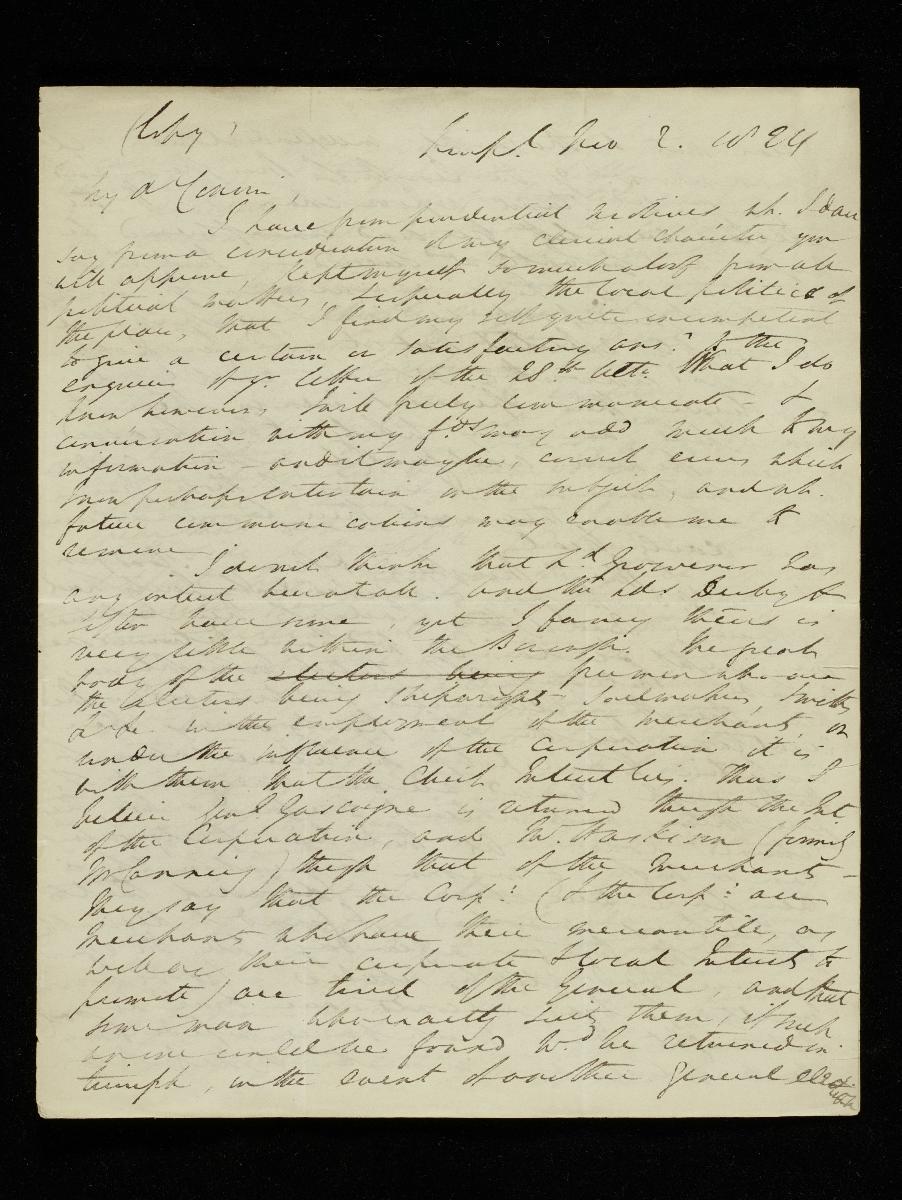 (Copy)
Liverpl. Nov 2. 1824
My dr Cousin,
I have from prudential motives, wh. I dare
say from a consideration of my clerical character you
will approve, kept myself so much aloof from all
political matters, & especially the local politics of
the place, that I find myself quite incompetent
to give a certain or satisfactory ansr. to the
enquiries of yr. letter of the 28th Octr. What I do
know however, I will freely communicate - &
conversation with my fds may add much to my
information - and it may be, correct errors which
I now perhaps entertain on the subject, and wh.
future communications may enable me to
remove.
I do not think that Ld. Grosvenor has
any interest here at all. and tho' Lds Derby &
Sefton have some, yet I fancy theirs is
very little within the Borough. The great
body of the electors being freemen who are
the electors being shipwrights sailmakers, smiths
&c &c. in the employment of the merchants, or
under the influence of the Corporation it is
with them that the Chief Interest lies. Thus I
believe Genl. Gascoigne is returned through the Int
of the Corporation, and Mr. Huskisson (formerly
Mr Canning) through that of the merchants -
They say that the Corpn: (& the Corpn: are
merchants who have their mercantile, as
well as their corporate & local Interests to
promote) are tired of the General, and that
some man who exactly suits them, if such
an one could be found wd. be returned in
triumph, in the event of another general election